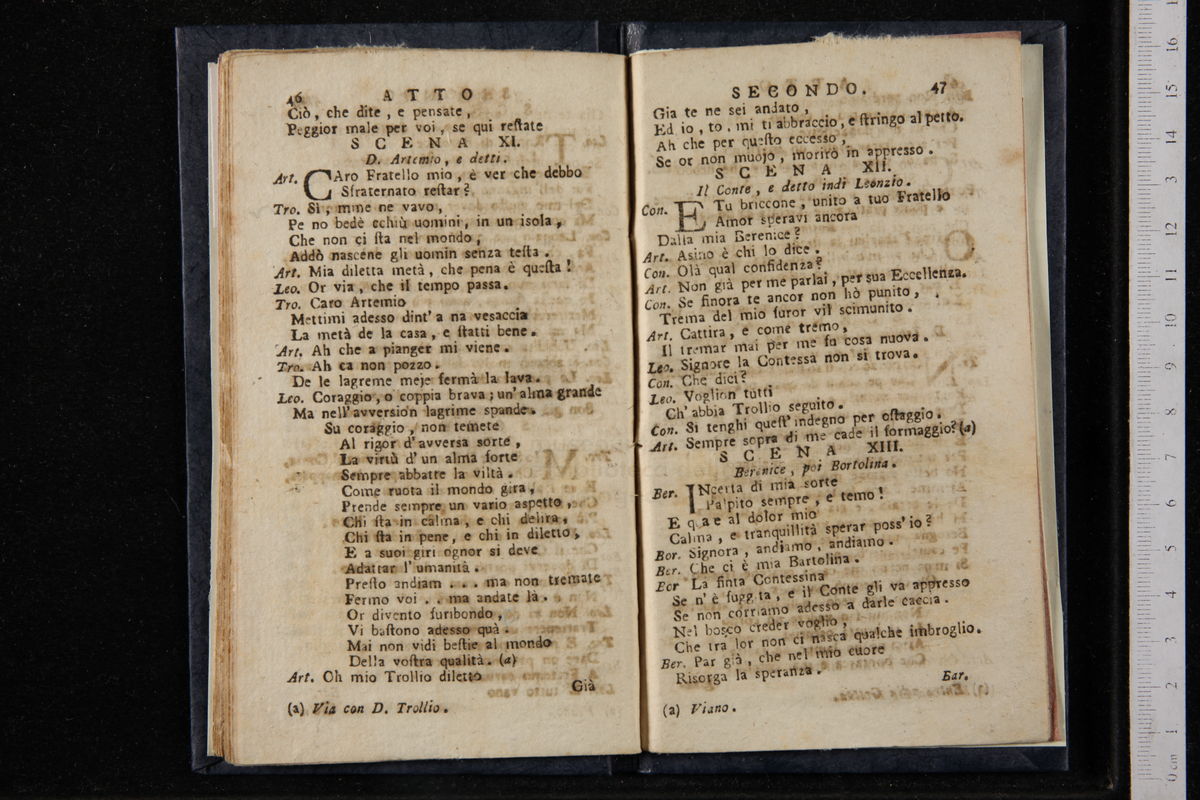 46 ATTO
Ciò, che dite, e pensate,
Peggior male per voi, se qui reſtate
SCENA XI.
D. Artemio, e detti.
Art. CAro Fratello mio, è ver che debbo
Sfraternato reſtar?
Tro. Sì, mme ne vavo,
Pe no bedè cchiù uomini, in un isola,
Che non ci ſta nel mondo,
Addò nascene gli uomin senza teſta.
Art. Mia diletta metà, che pena è queſta!
Leo. Or via, che il tempo passa.
Tro. Caro Artemio
Mettimi adesso dint'a na vesaccia
La metà de la casa, e ſtatti bene.
Art. Ah che a pianger mi viene.
Tro. Ah ca non pozzo.
De le lagreme meje fermà la lava.
Leo. Coraggio, o coppia brava; un'alma grande
Ma nell'avversion lagrime spande.
Su coraggio, non temete
Al rigor d'avversa sorte,
La virtù d'un alma forte
Sempre abbatte la viltà.
Come ruota il mondo gira,
Prende sempre un vario aspetto,
Chi ſta in calma, e chi delira,
Chi ſta in pene, e chi in diletto,
E a suoi giri ognor si deve
Adattar l'umanità.
Preſto andiam . . . ma non tremate
Fermo voi . . ma andate là.
Or divento furibondo,
Vi baſtono adesso quà.
Mai non vidi beſtie al mondo
Della voſtra qualità. (a)
Art. Oh mio Trollio diletto
Già
(a) Via con D. Trollio.
SECONDO. 47
Gia te ne sei andato,
Ed io, to, mi ti abbraccio, e ſtringo al petto.
Ah che per queſto eccesso,
Se or non muojo, morirò in appresso.
SCENA XII.
Il Conte, e detto indi Leonzio.
Con. E Tu briccone, unito a tuo Fratello
Amor speravi ancora
Dalla mia Berenice?
Art. Asino è chi lo dice.
Con. Olà qual confidenza?
Art. Non già per me parlai, per sua Eccellenza.
Con. Se finora te ancor non hò punito,
Trema del mio furor vil scimunito.
Art. Cattira, e come tremo,
Il tremar mai per me fu cosa nuova.
Leo. Signore la Contessa non si trova.
Con. Che dici?
Leo. Voglion tutti
Ch'abbia Trollio seguito.
Con. Si tenghi queſt'indegno per oſtaggio.
Art. Sempre sopra di me cade il formaggio? (a)
SCENA XIII.
Berenice, poi Bortolina.
Ber. INcerta di mia sorte
Palpito sempre, e temo!
E al dolor mio
Calma, e tranquillità sperar poss'io?
Bor. Signora, andiamo, andiamo.
Ber. Che ci è mia Bartolina.
Bor La finta Contessina
Se n'è fugg ta, e il Conte gli va appresso
Se non corriamo adesso a darle caccia.
Nel bosco creder voglio,
Che tra lor non ci nasca qualche imbroglio.
Ber. Par già, che nel mio cuore
Risorga la speranza.
Bar.
(a) Viano.